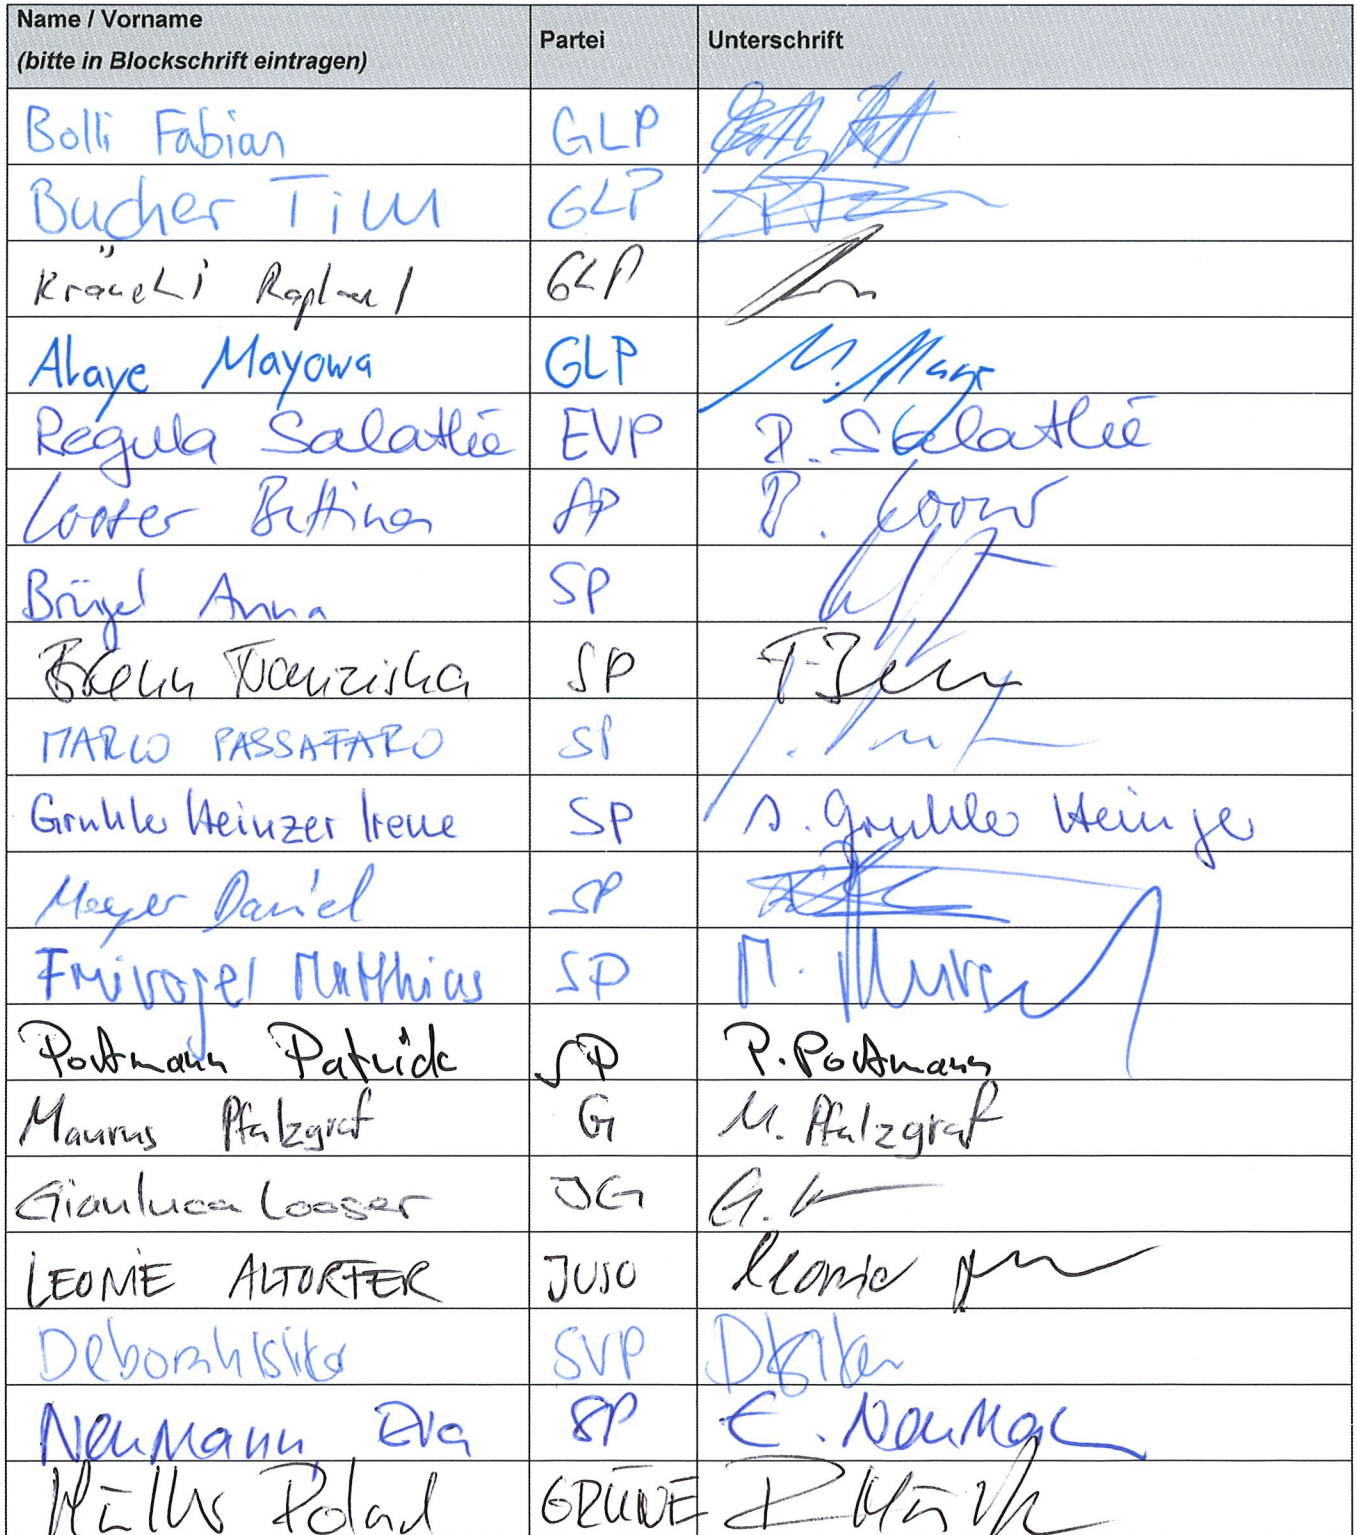 Name / Vorname
(bitte in Blockschrift eintragen)
Partei
Unterschrift
Bolli Fabian GLP
Bucher Tim GLP
Kräuchi Raphael GLP
Alaye Mayowa GLP M.
Regula Salathé EVP R. Salathé
Looser Bettina SP B. Looser
Brüngel Anna SP
Brenn Franziska SP F. Brenn
MARCO PASSAFARO SP
Gruhler Heinzer Irene SP I. Gruhler Heinzer
Meyer Daniel SP
Freivogel Matthias SP M.
Portmann Patrick SP P. Portmann
Maurus Pfalzgraf G M. Pfalzgraf
Gianluca Looser JG G. L
LEONIE ALTORFER JUSO Leonie
Deborah Isliker SVP
Neumann Eva SP E. Neumann
Müller Roland GRÜNE R Müller